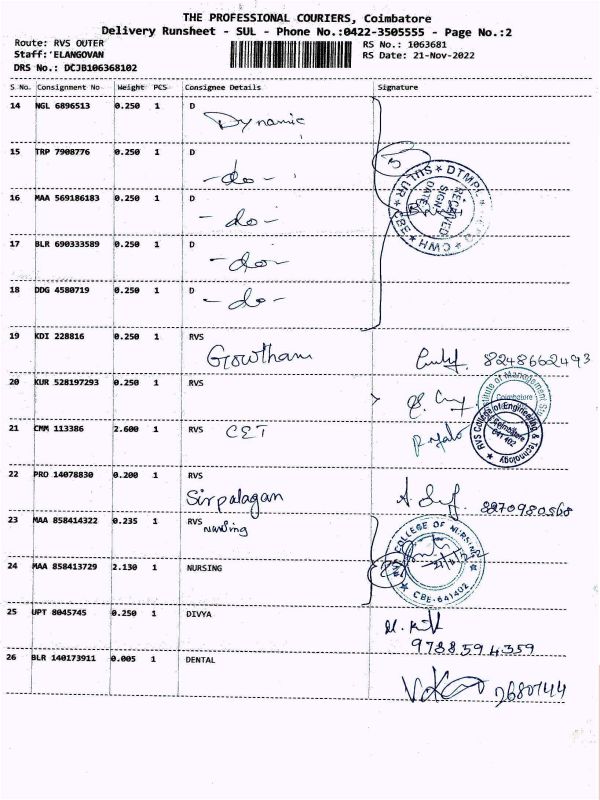 THE PROFESSIONAL COURIERS, Coimbatore
Delivery Runsheet - SUL - Phone No.:0422-3505555 - Page No.:2
Route: RVS OUTER
RS No.: 1063681
Staff: ELANGOVAN
RS Date: 21-Nov-2022
DRS No.: DCJB106368102
S No. Consignment No Weight PCS Consignee Details Signature
14 NGL 6896513 0.250 1 D
Dynamic
15 TRP 7908776 0.250 1 D
-do-
5
16 MAA 569186183 0.250 1 D
-do-
SULUR * DTMPL * CWH * CBE
RECEIVED
SIGN
DATE
17 BLR 690333589 0.250 1 D
-do-
18 DDG 4580719 0.250 1 D
-do-
19 KDI 228816 0.250 1 RVS
Gowtham 8248662493
20 KUR 528197293 0.250 1 RVS
Institute of Management
Coimbatore
21 CMM 113386 2.600 1 RVS CET
RVS College of Engineering & Technology
Coimbatore
641 402
22 PRO 14078830 0.200 1 RVS
Sirpalagan 8870980568
23 MAA 858414322 0.235 1 RVS
nursing
COLLEGE OF NURSING
CBE-641402
24 MAA 858413729 2.130 1 NURSING
25 UPT 8045745 0.250 1 DIVYA
9788594359
26 BLR 140173911 0.005 1 DENTAL
2680744